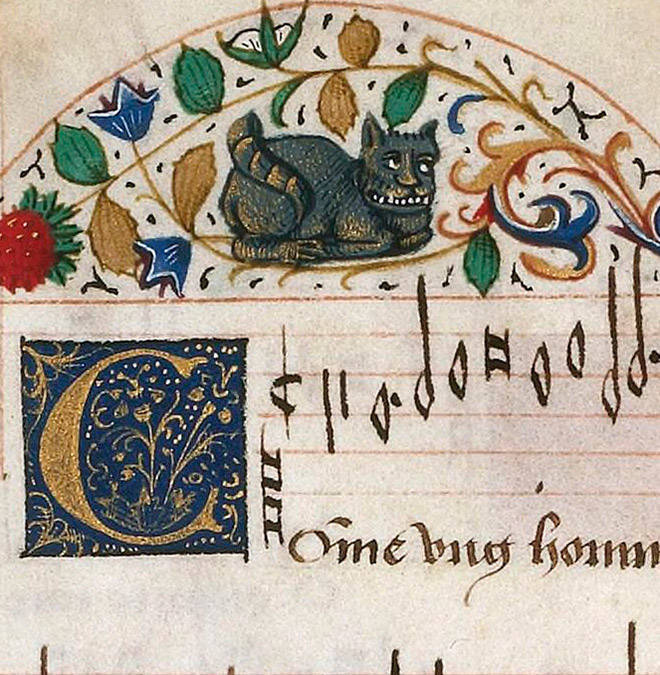 CÕme vng homm